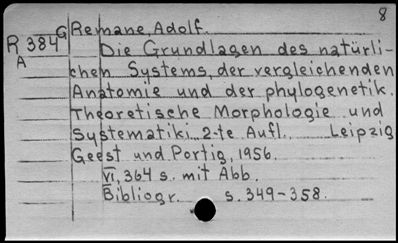 8
G Remane, Adolf.
R 384 Die Grundlagen des natürli-
A chen Systems, der vergleichenden
Anatomie und der phylogenetik.
Theoretische Morphologie und
Systematiki 2-te Aufl. Leipzig
Geest und Portig, 1956.
VI, 364 s. mit Abb.
Bibliogr. s. 349-358.